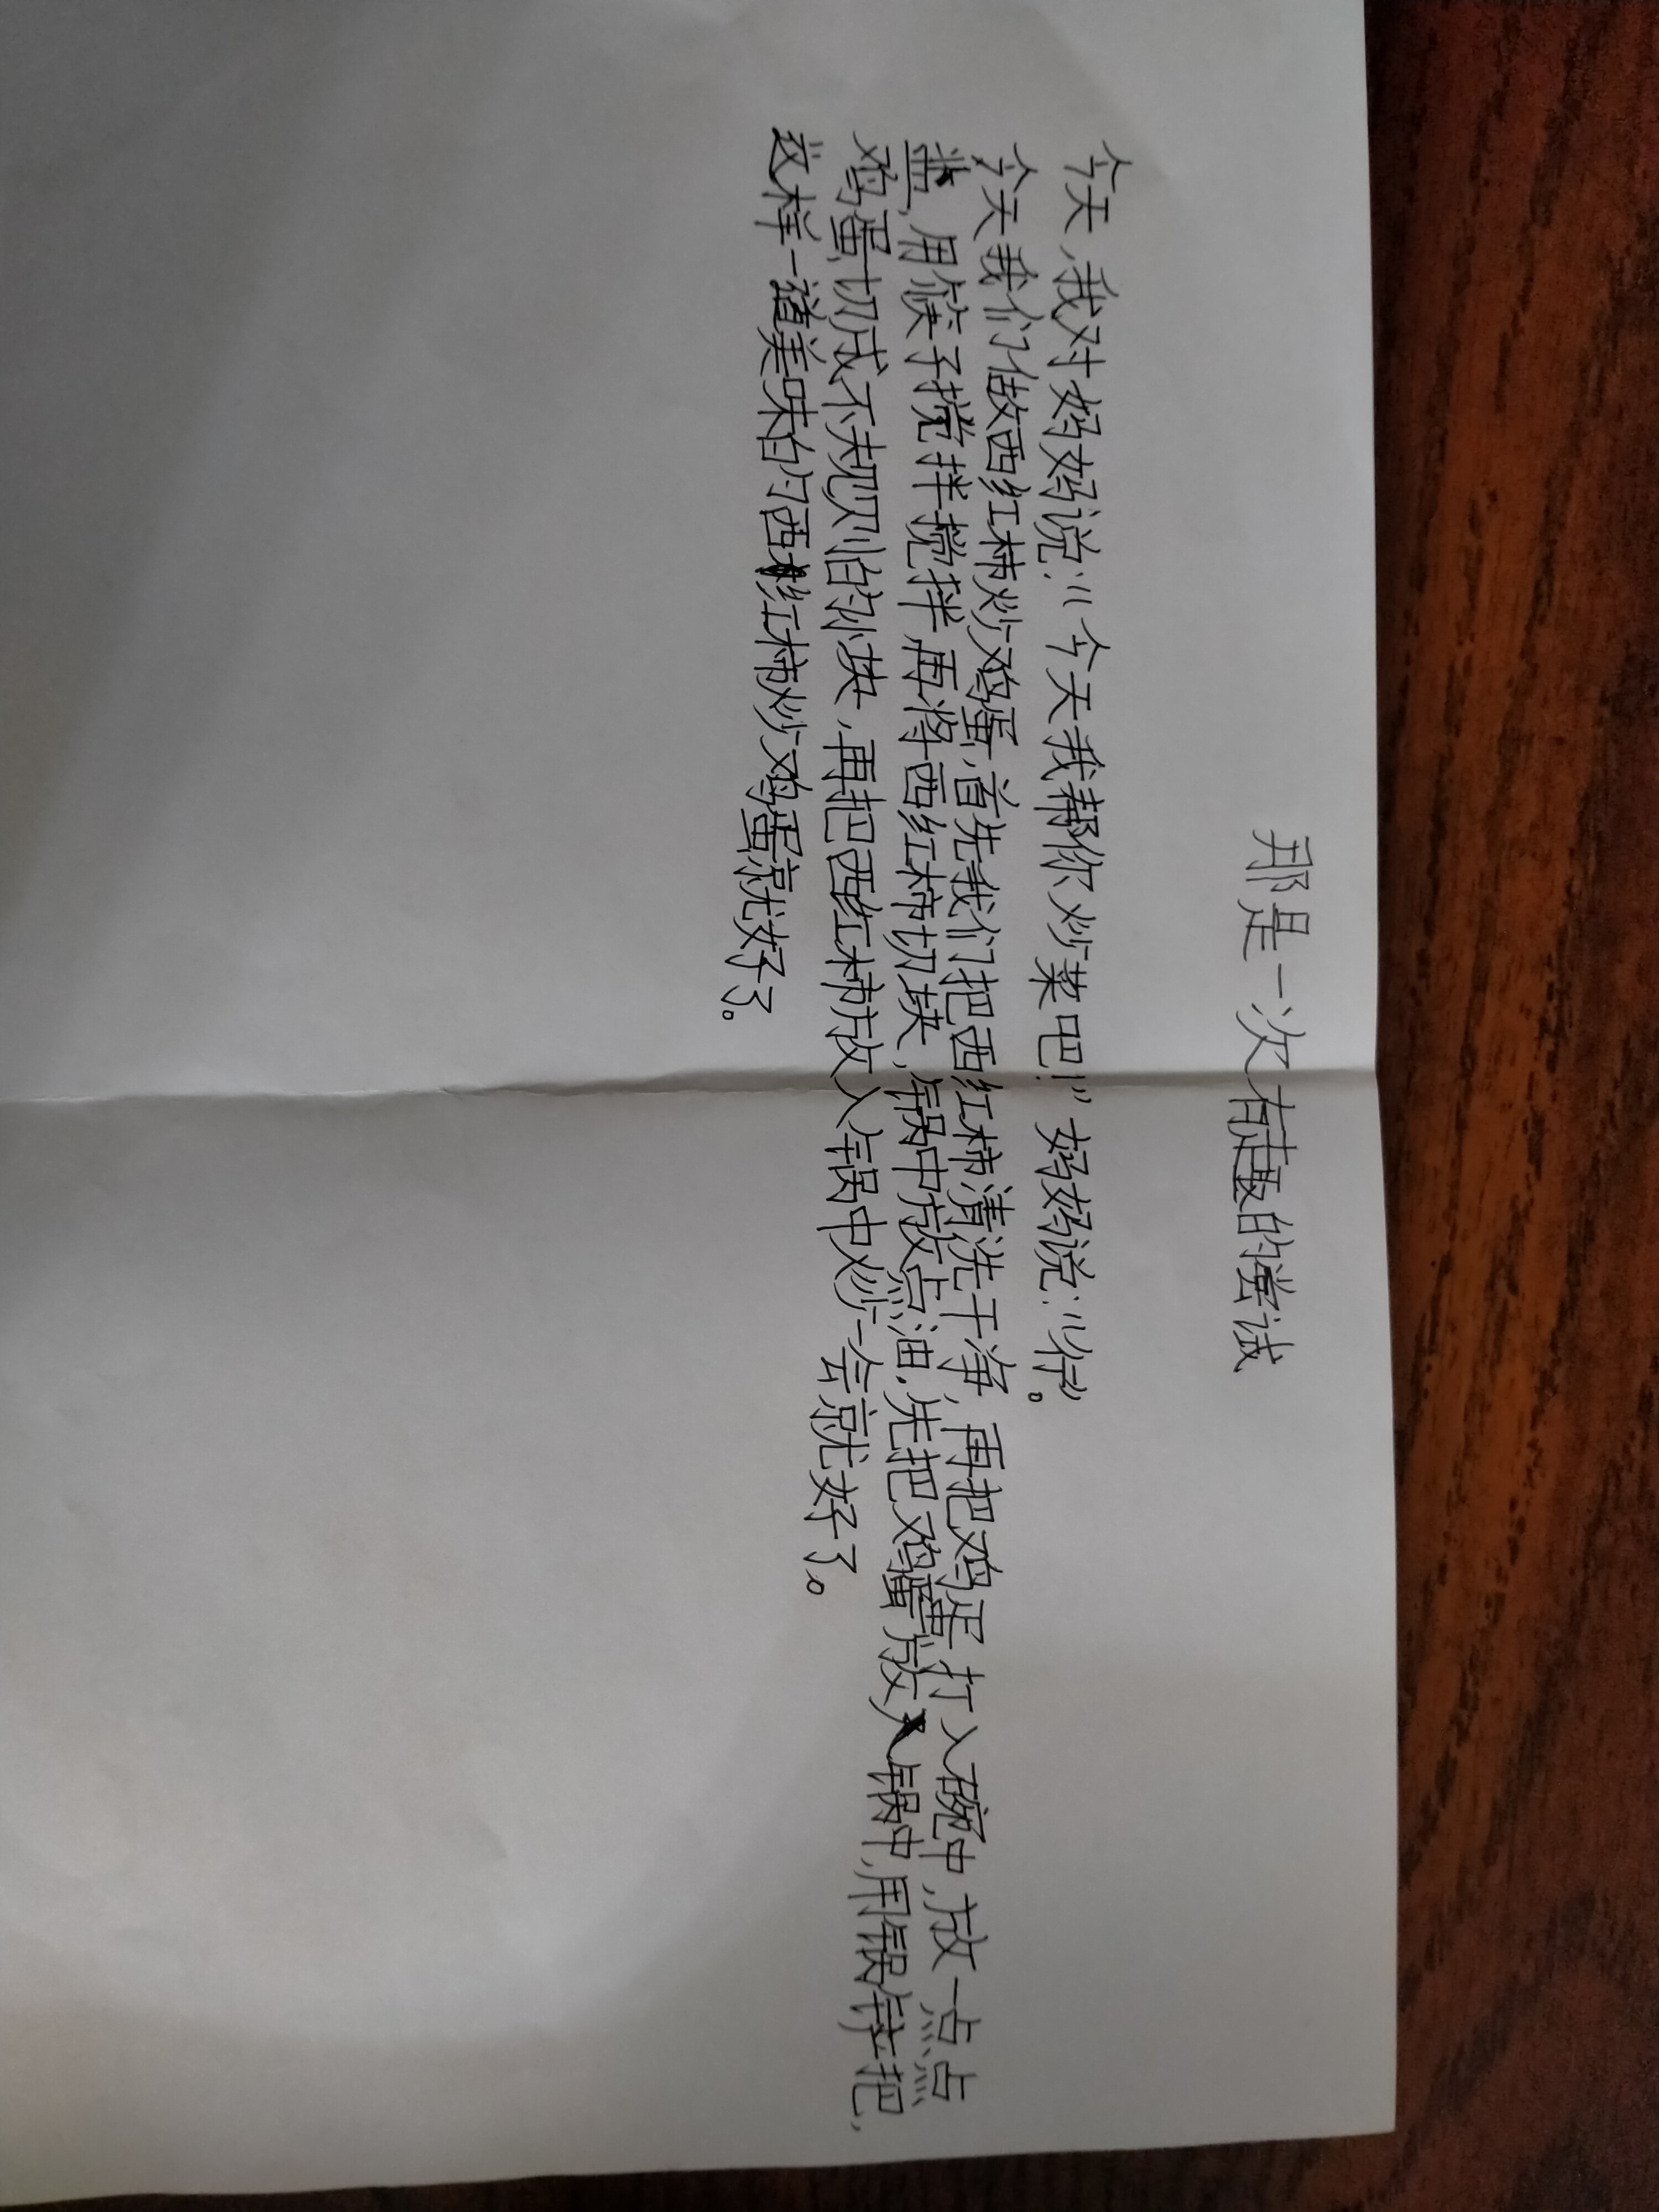 那是一次有趣的尝试
今天,我对妈妈说:“今天我帮你炒菜吧!”妈妈说:“行”。
今天我们做西红柿炒鸡蛋,首先我们把西红柿清洗干净,再把鸡蛋打入碗中,放一点点
盐,用筷子搅拌搅拌,再将西红柿切块,锅中放点油,先把鸡蛋放入锅中,用锅铲把,
鸡蛋切成不规则的小块,再把西红柿放入锅中炒一会就好了。
这样一道美味的西红柿炒鸡蛋就好了。